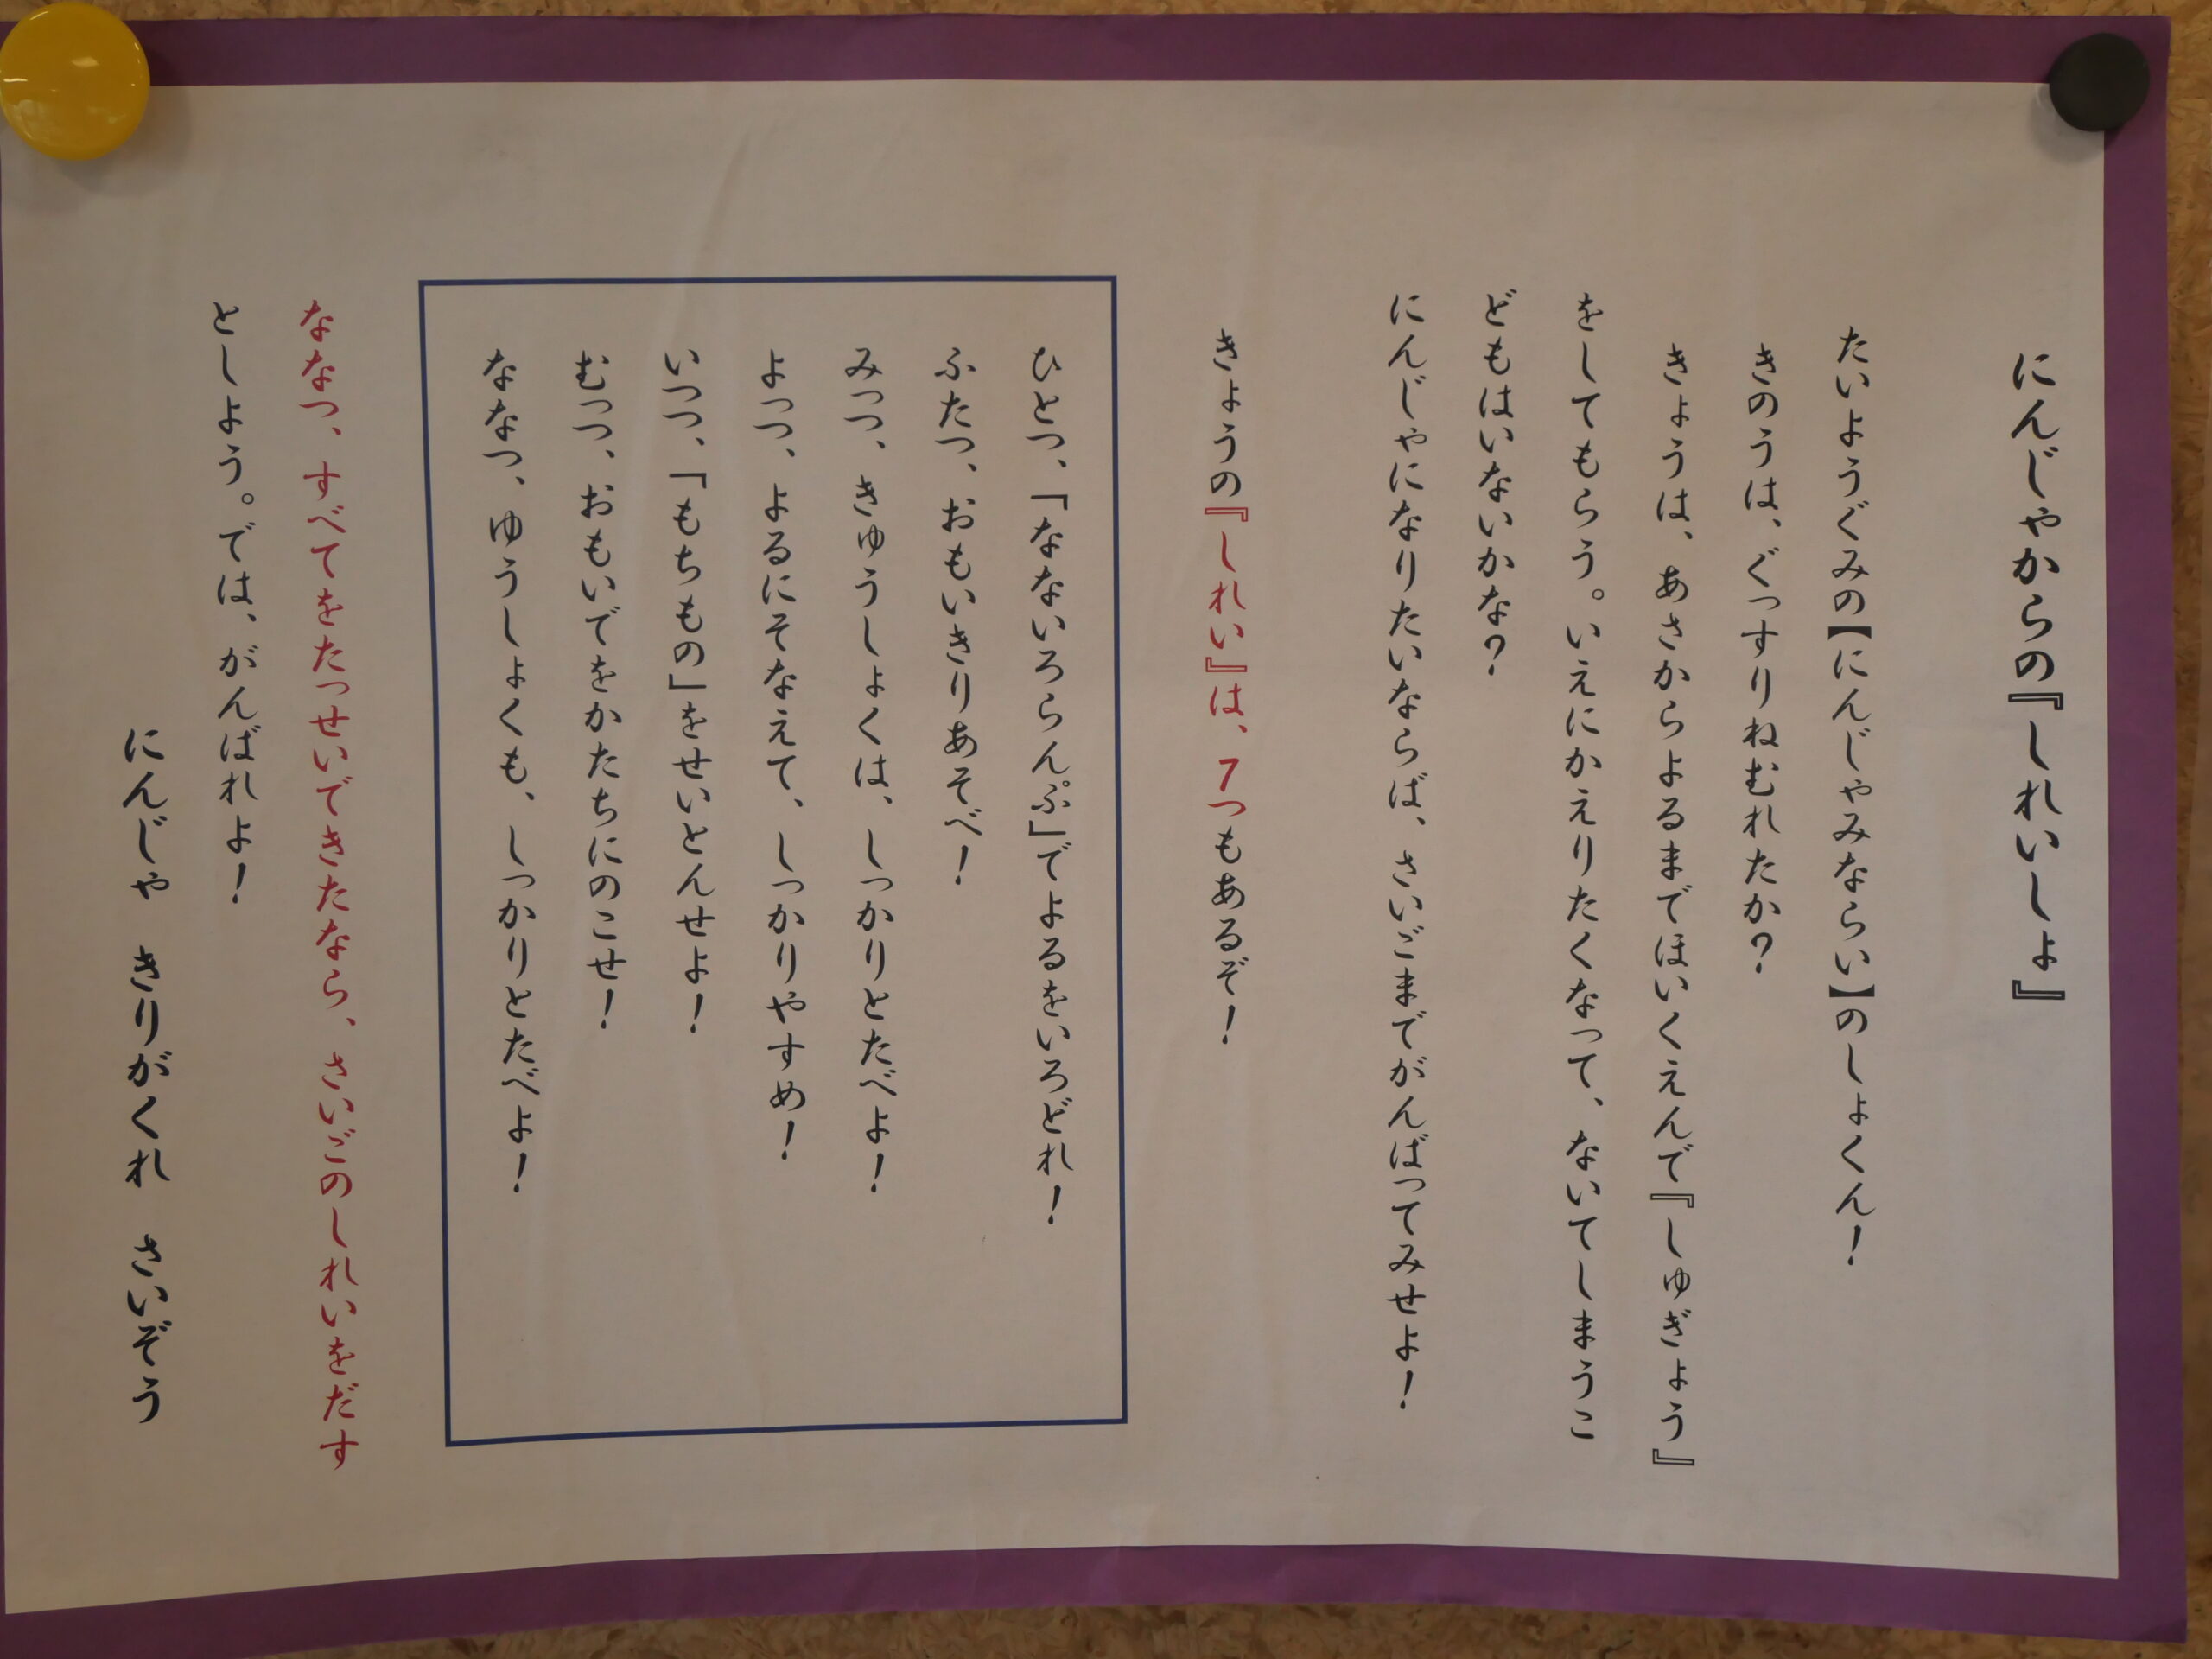 にんじゃからの『しれいしょ』
たいようぐみの【にんじゃみならい】のしょくん！
きのうは、ぐっすりねむれたか？
きょうは、あさからよるまでほいくえんで『しゅぎょう』
をしてもらう。いえにかえりたくなって、ないてしまうこ
どもはいないかな？
にんじゃになりたいならば、さいごまでがんばってみせよ！
きょうの『しれい』は、7つもあるぞ！
ひとつ、「なないろらんぷ」でよるをいろどれ！
ふたつ、おもいきりあそべ！
みっつ、きゅうしょくは、しっかりとたべよ！
よっつ、よるにそなえて、しっかりやすめ！
いつつ、「もちもの」をせいとんせよ！
むっつ、おもいでをかたちにのこせ！
ななつ、ゆうしょくも、しっかりとたべよ！
ななつ、すべてをたっせいできたなら、さいごのしれいをだす
としよう。では、がんばれよ！
にんじゃ　きりがくれ　さいぞう